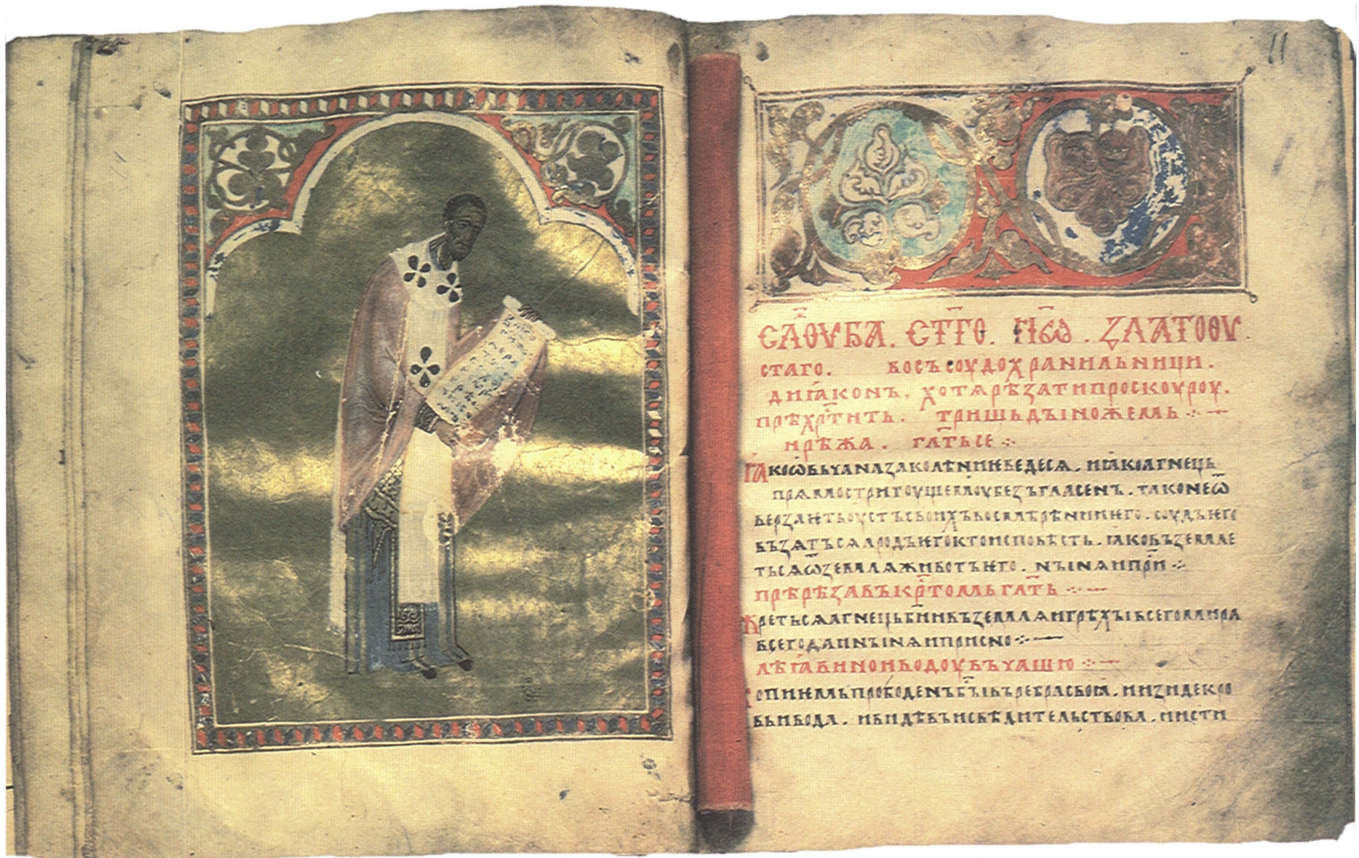 11
СЛОУЖБА. СТГО. ИѠ. ЗЛАТООУ.
СТАГО. ВОСЪСОУДОХРАНИЛЬНИЦИ.
ДИꙖКОНЪ. ХОТѦРѢЗАТИПРОСКОУРОУ.
ПРѢХРТИТЬ. ТРИШЬДЪІНОЖЕМЬ
ИРѢЖА. ГЛТЬСЕ
ꙖКОѠВЬЧАНАЗАКОЛѢНИЕВЕДЕСѦ. ИꙖКОАГНЕЦЬ
ПРѦМОСТРИГОУЩЕМОУБЕЗЪГЛАСЕНЪ. ТАКОНЕѠ
ВЕРЗАЕТЬОУСТЪСВОИХЪВОСМѢРЕНИИЕГО. СОУДЪЕГО
ВЪЗѦТЪСѦ РОДЪЖЕЕГОКТОИСПОВѢСТЬ. ꙖКОВЪЗЕМЛЕ
ТЬСѦѠЗЕМЛѦЖИВОТЪЕГО. НЪІНѦИПРИ
ПРѢРѢЗАВЪКРТОМЬГЛТЬ
ЖРЕТЬСѦАГНЕЦЬБИИВЪЗЕМЛѦИГРѢХЪІВСЕГОМИРА
ВСЕГДАИНЪІНѦИПРИСНО
ЛѢꙖВИНОИВОДОУВЪЧАШЮ
КОПИЕМЬПРОБОДЕНЪБЪІВЪРЕБРАСВОꙖ. ИИЗИДЕКРО
ВЬИВОДА. ИВИДѢВЪИСВѢДИТЕЛЬСТВОВА. ИИСТИ